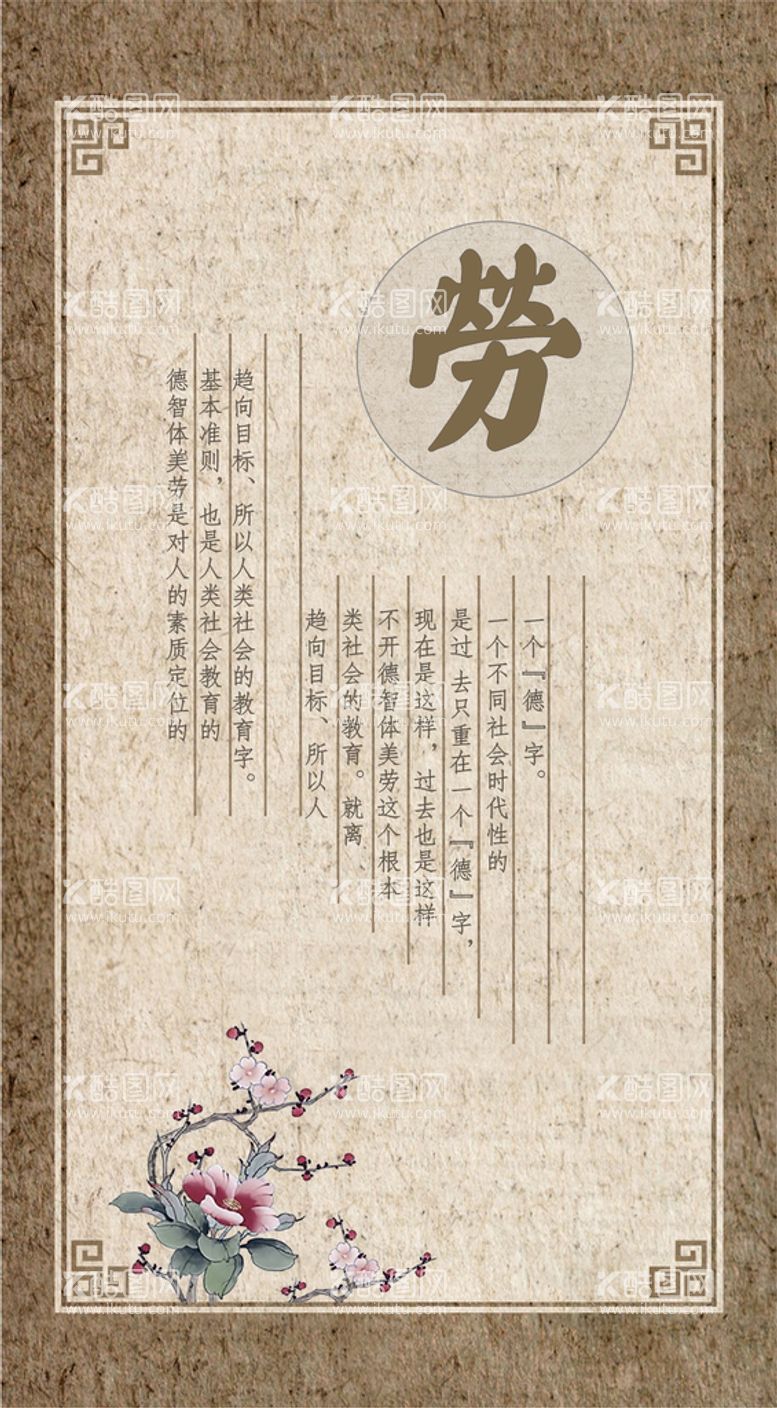 勞
德智体美劳是对人的素质定位的
基本准则，也是人类社会教育的
趋向目标、所以人类社会的教育字。
趋向目标、所以人
类社会的教育。就离
不开德智体美劳这个根本
现在是这样，过去也是这样
是过 去只重在一个『德』字，
一个不同社会时代性的
一个『德』字。
酷图网
www.ikutu.com